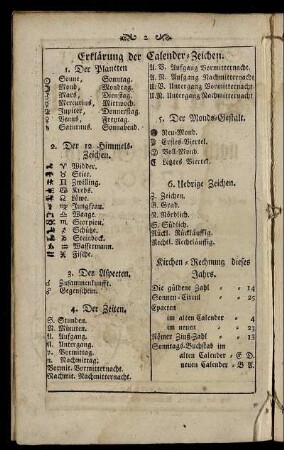 2
Erklärung der Calender-Zeichen.
1. Der Planeten
☉ Sonne, Sonntag.
☽ Mond, Mondtag.
♂ Mars, Dienstag.
☿ Mercurius, Mittwoch.
♃ Jupiter, Donnerstag.
♀ Venus, Freytag.
♄ Saturnus, Sonnabend.
2. Der 12 Himmels-
Zeichen.
♈ Widder.
♉ Stier.
♊ Zwilling.
♋ Krebs.
♌ Löwe.
♍ Jungfrau.
♎ Waage.
♏ Scorpion.
♐ Schütze.
♑ Steinbock.
♒ Wassermann.
♓ Fische.
3. Den Aspecten.
☌ Zusammenkunfft.
☍ Gegenschein.
4. Der Zeiten.
S. Stunden.
M. Minuten.
A. Aufgang.
U. Untergang.
V. Vormittag.
N. Nachmittag.
Vormit. Vormitternacht.
Nachmit. Nachmitternacht.
A. V. Aufgang Vormitternacht.
A. N. Aufgang Nachmitternacht
U. V. Untergang Vormitternacht
U. N. Untergang Nachmitternacht
5. Der Monds-Gestalt.
Neu-Mond.
Erstes-Viertel.
Voll-Mond.
Letztes Viertel.
6. Uebrige Zeichen.
Z. Zeichen.
G. Grad.
N. Nördlich.
S. Südlich.
Rückl. Rückläuffig.
Rechtl. Rechtläuffig.
Kirchen-Rechnung dieses
Jahrs.
Die güldene Zahl - 14
Sonnen-Circul - 25
Epacten
im alten Calender - 4
im neuen - 23
Römer Zinß-Zahl - 13
Sonntags-Buchstab im
alten Calender - E D.
neuen Calender - B A.